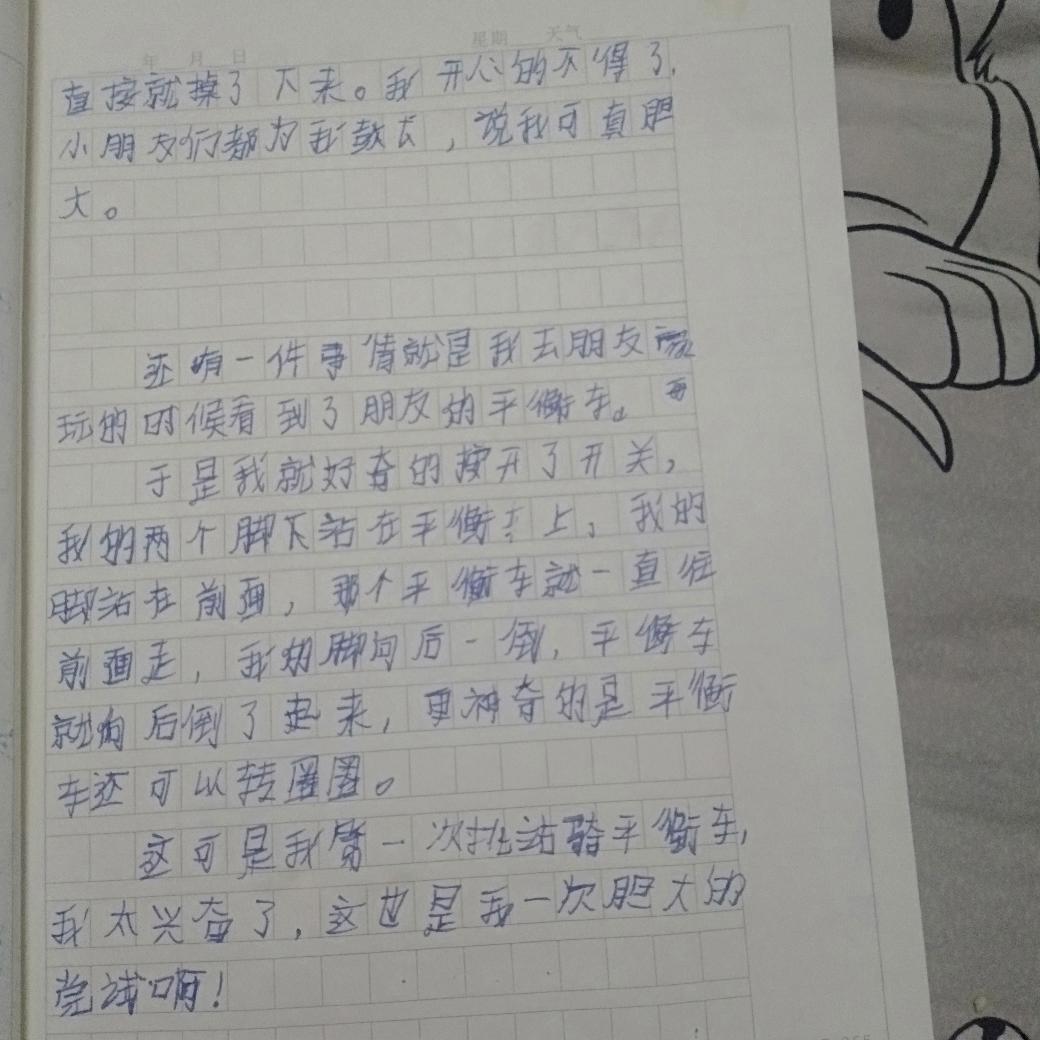 年 月 日 星期 天气
直接就掉了下来。我开心的不得了,
小朋友们都为我鼓去,说我可真胆
大。
还有一件事情就是我去朋友家
玩的时候看到了朋友的平衡车。
于是我就好奇的按开了开关,
我的两个脚下站在平衡车上,我的
脚站在前面,那个平衡车就一直往
前面走,我的脚向后一倒,平衡车
就向后倒了起来,更神奇的是平衡
车还可以转圈圈。
这可是我第一次挑站骑平衡车,
我太兴奋了,这也是我一次胆大的
尝试啊!